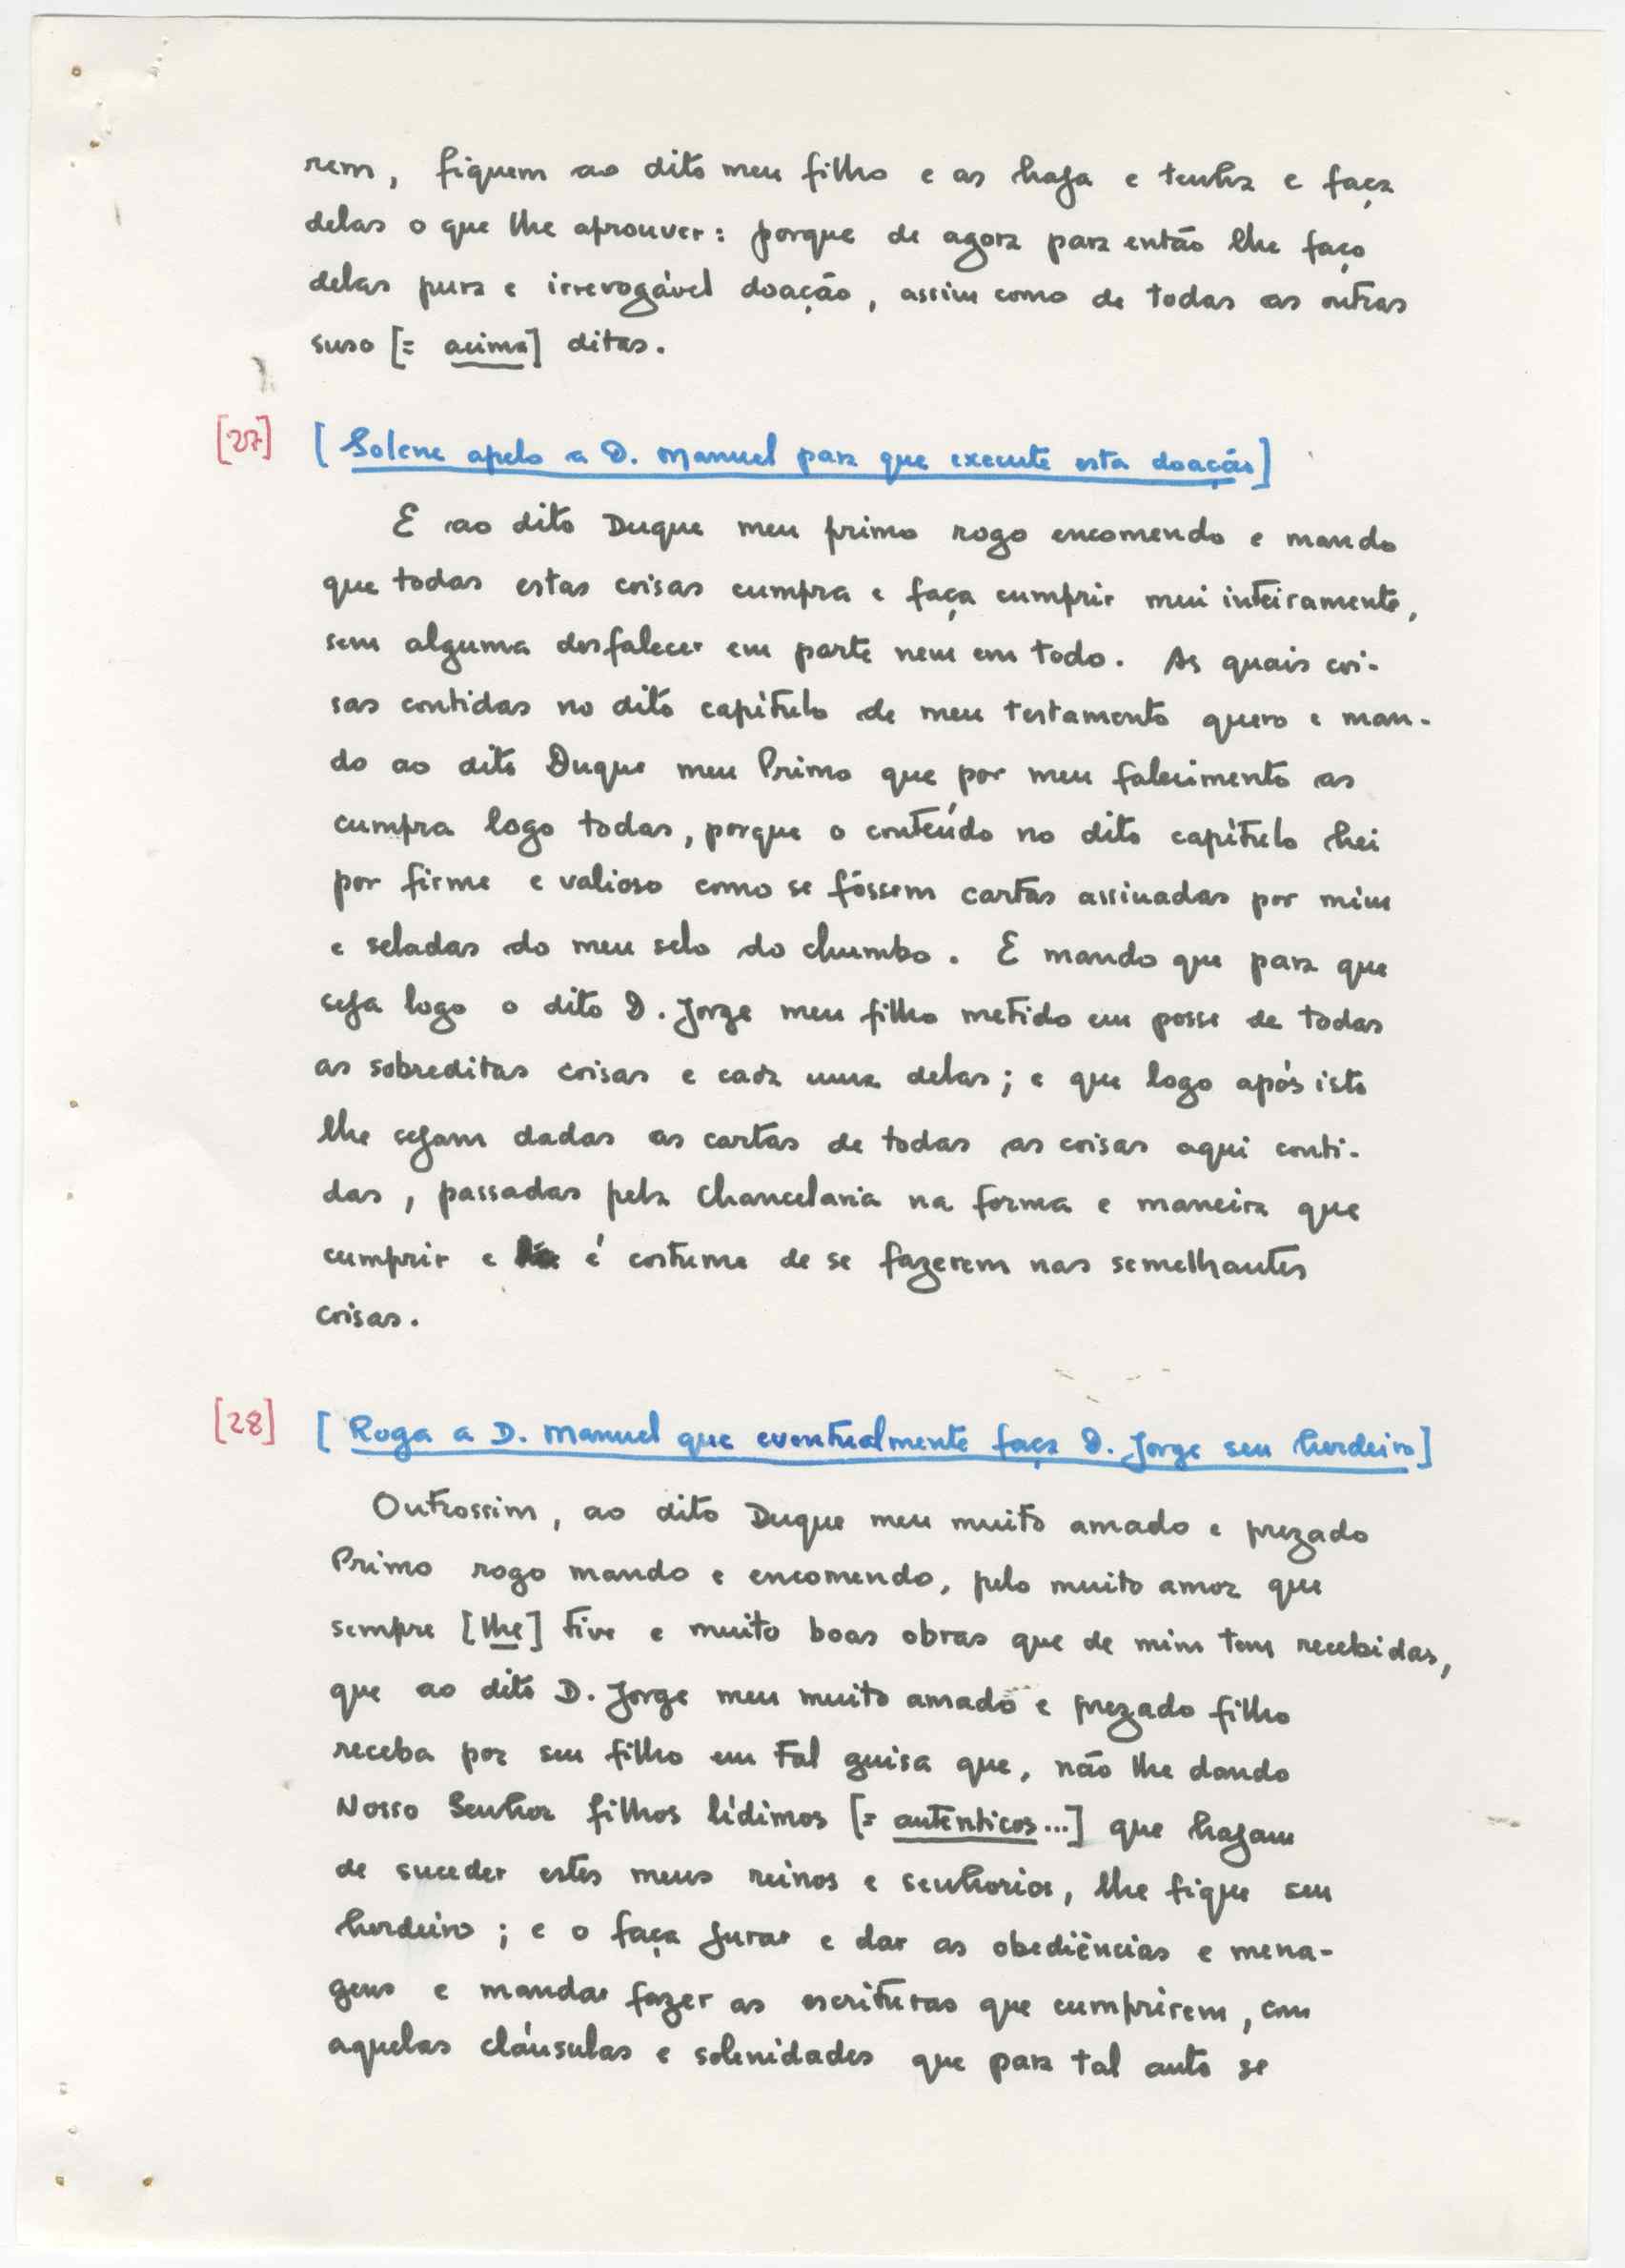 rem, fiquem ao dito meu filho e as haja e tenha e faça
delas o que lhe aprouver: porque de agora para então lhe faço
delas pura e irrevogável doação, assim como de todas as outras
suso [= acima] ditas.
[27] [Solene apelo a D. Manuel para que execute esta doação]
E ao dito Duque meu primo rogo encomendo e mando
que todas estas coisas cumpra e faça cumprir mui inteiramente,
sem alguma desfalecer em parte nem em todo. As quais coi-
sas contidas no dito capítulo de meu testamento quero e man-
do ao dito Duque meu Primo que por meu falecimento as
cumpra logo todas, porque o conteúdo no dito capítulo hei
por firme e valioso como se fôssem cartas assinadas por mim
e seladas do meu selo do chumbo. E mando que para que
seja logo o dito D. Jorge meu filho metido em posse de todas
as sobreditas coisas e cada uma delas; e que logo após isto
lhe sejam dadas as cartas de todas as coisas aqui conti-
das, passadas pela Chancelaria na forma e maneira que
cumprir e é costume de se fazerem nas semelhantes
coisas.
[28] [Roga a D. Manuel que eventualmente faça D. Jorge seu herdeiro]
Outrossim, ao dito Duque meu muito amado e prezado
Primo rogo mando e encomendo, pelo muito amor que
sempre [lhe] tive e muito boas obras que de mim tem recebidas,
que ao dito D. Jorge meu muito amado e prezado filho
receba por seu filho em tal guisa que, não lhe dando
Nosso Senhor filhos lídimos [= autênticos...] que hajam
de suceder estes meus reinos e senhorios, lhe fique seu
herdeiro; e o faça jurar e dar as obediências e mena-
gens e mandar fazer as escrituras que cumprirem, com
aquelas cláusulas e solenidades que para tal auto se